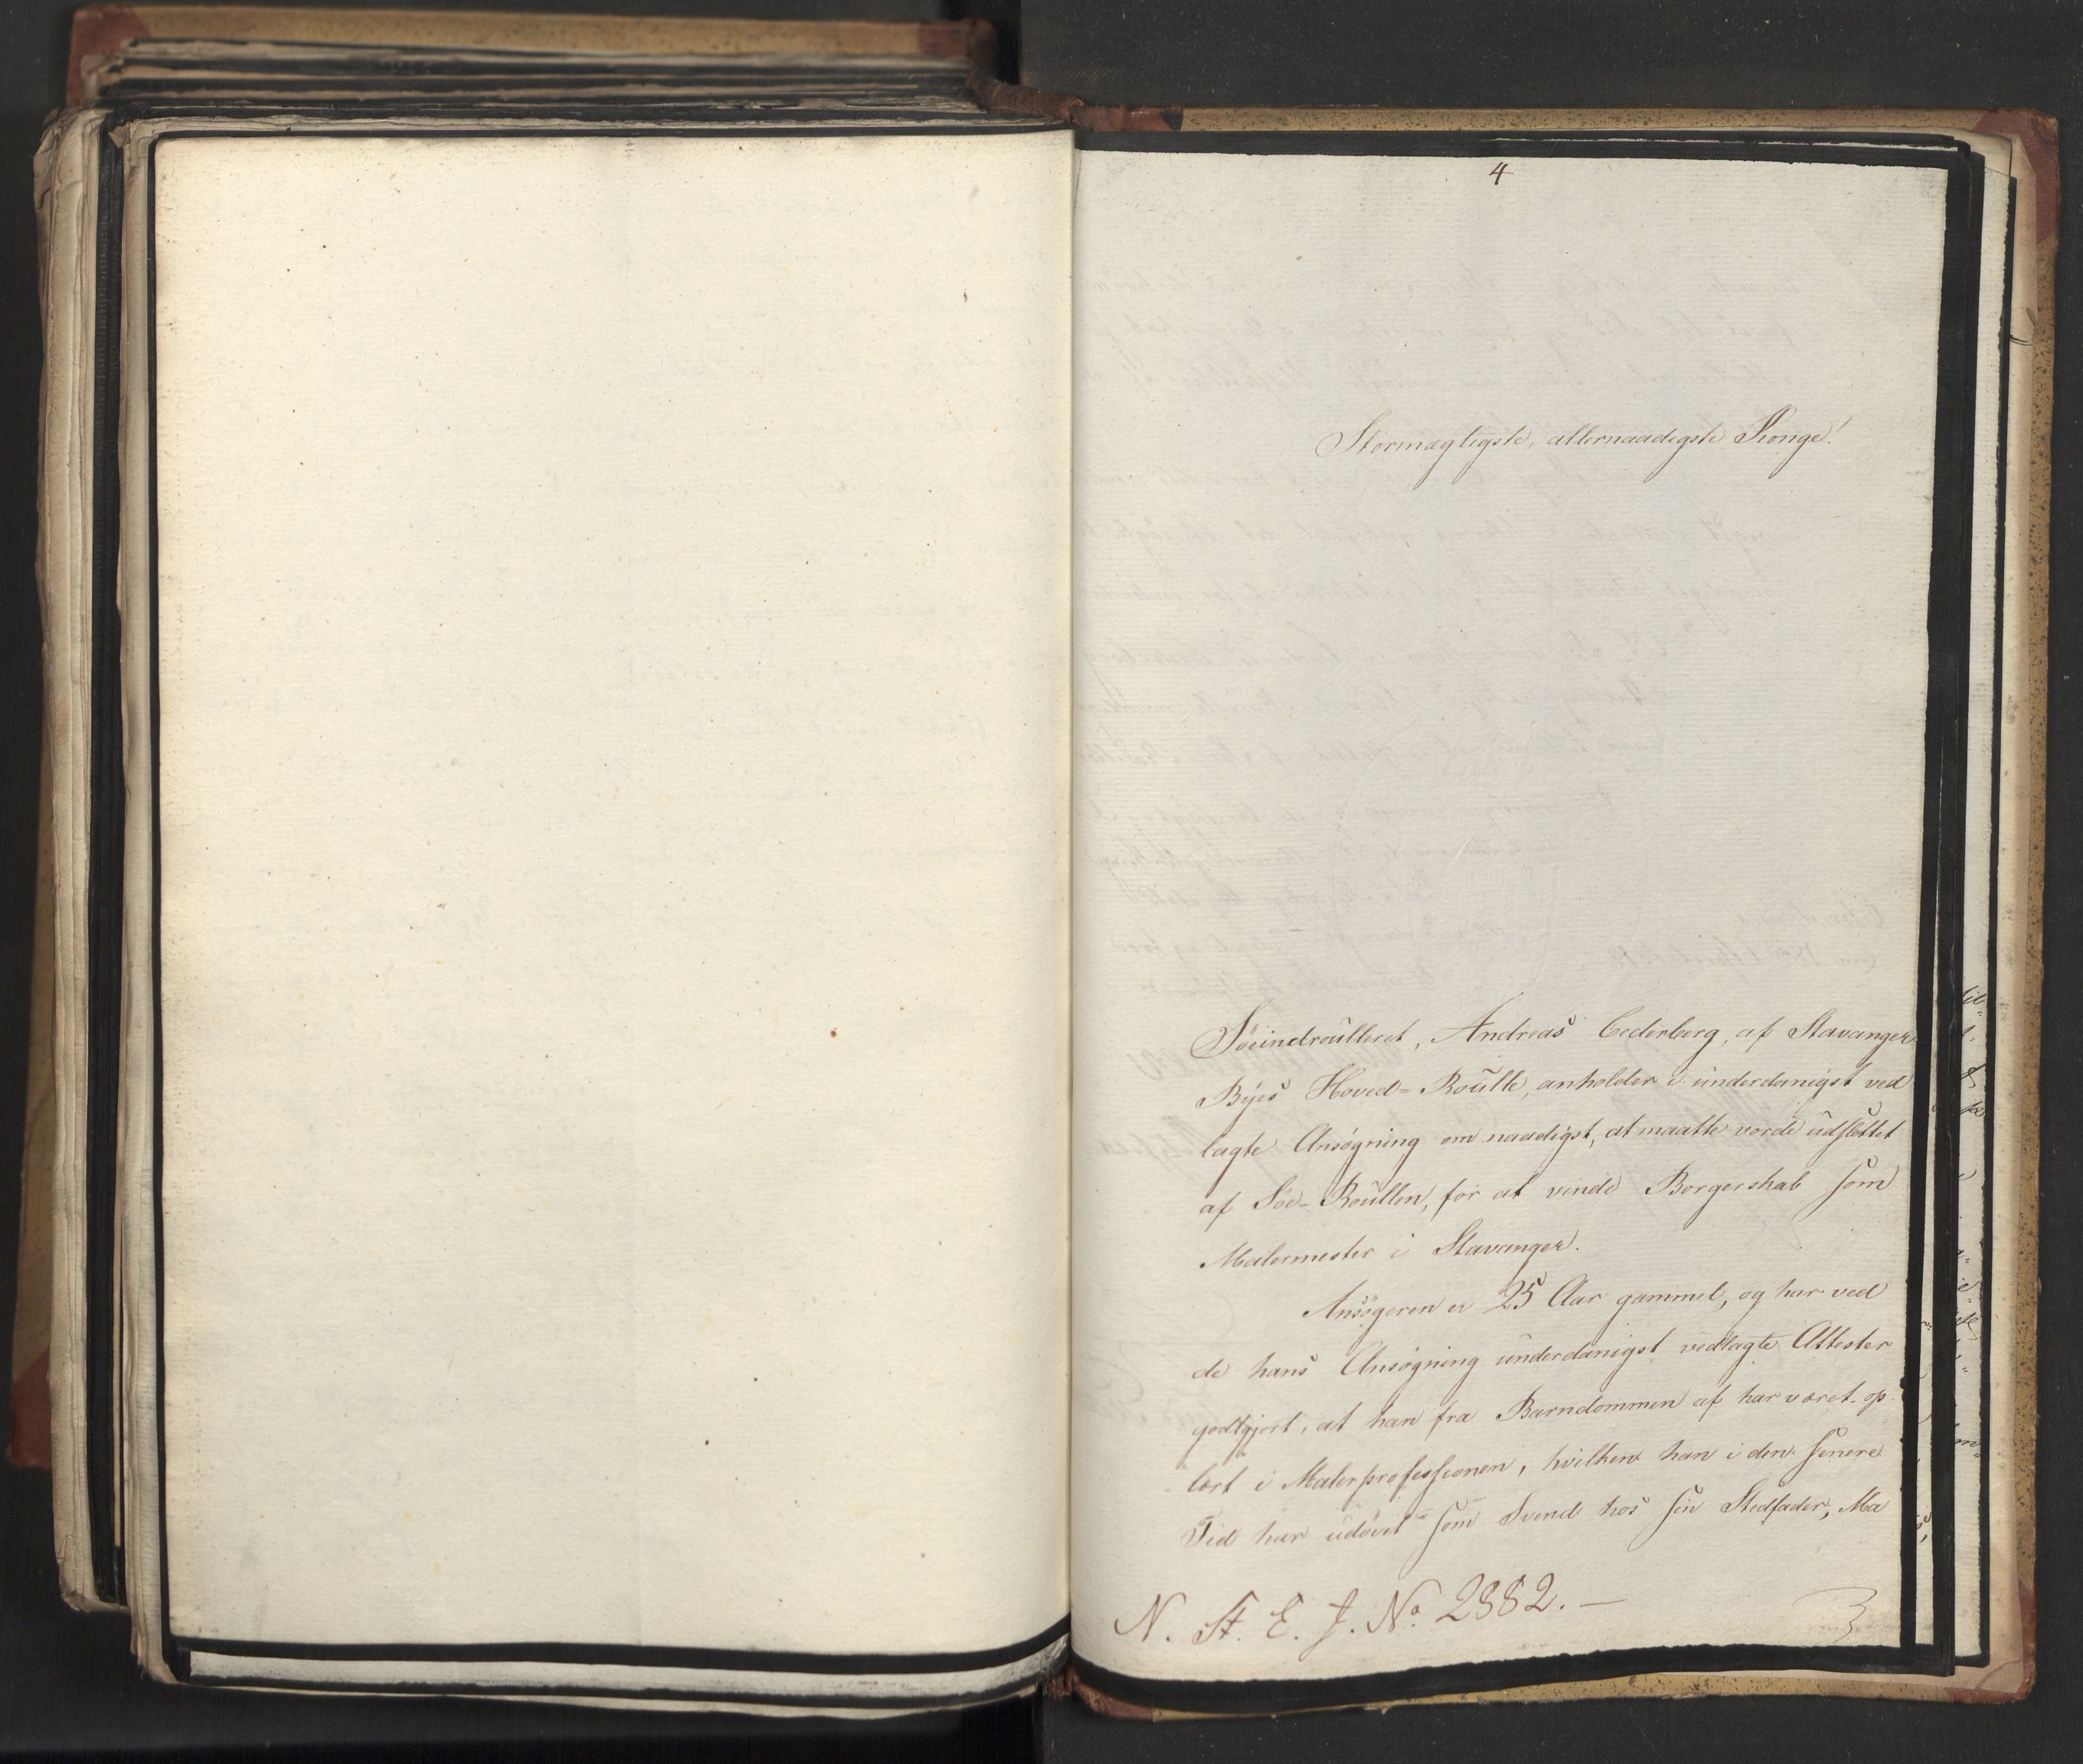 4
Stormægtigste, allernaadigste Konge!
Søeindroulleret, Andreas Cederberg, af Stavanger
Byes Hoved-Roulle, anholder i underdanigst ved
lagte Ansøgning om naadigst, at maatte vorde udslettet
af Søe-Roullen, for at vinde Borgerskab som
Malermester i Stavanger.
Ansøgeren er 25 Aar gammel, og har ved
de hans Ansøgning underdanigst vedlagte Attester
godtgjort, at han fra Barndommen af har været op
lært i Malerprofessionen, hvilken han i den senere
Tid har udøvet som Svend hos sin Stedfader, Ma
N. St. E. J. No 2882. —
3